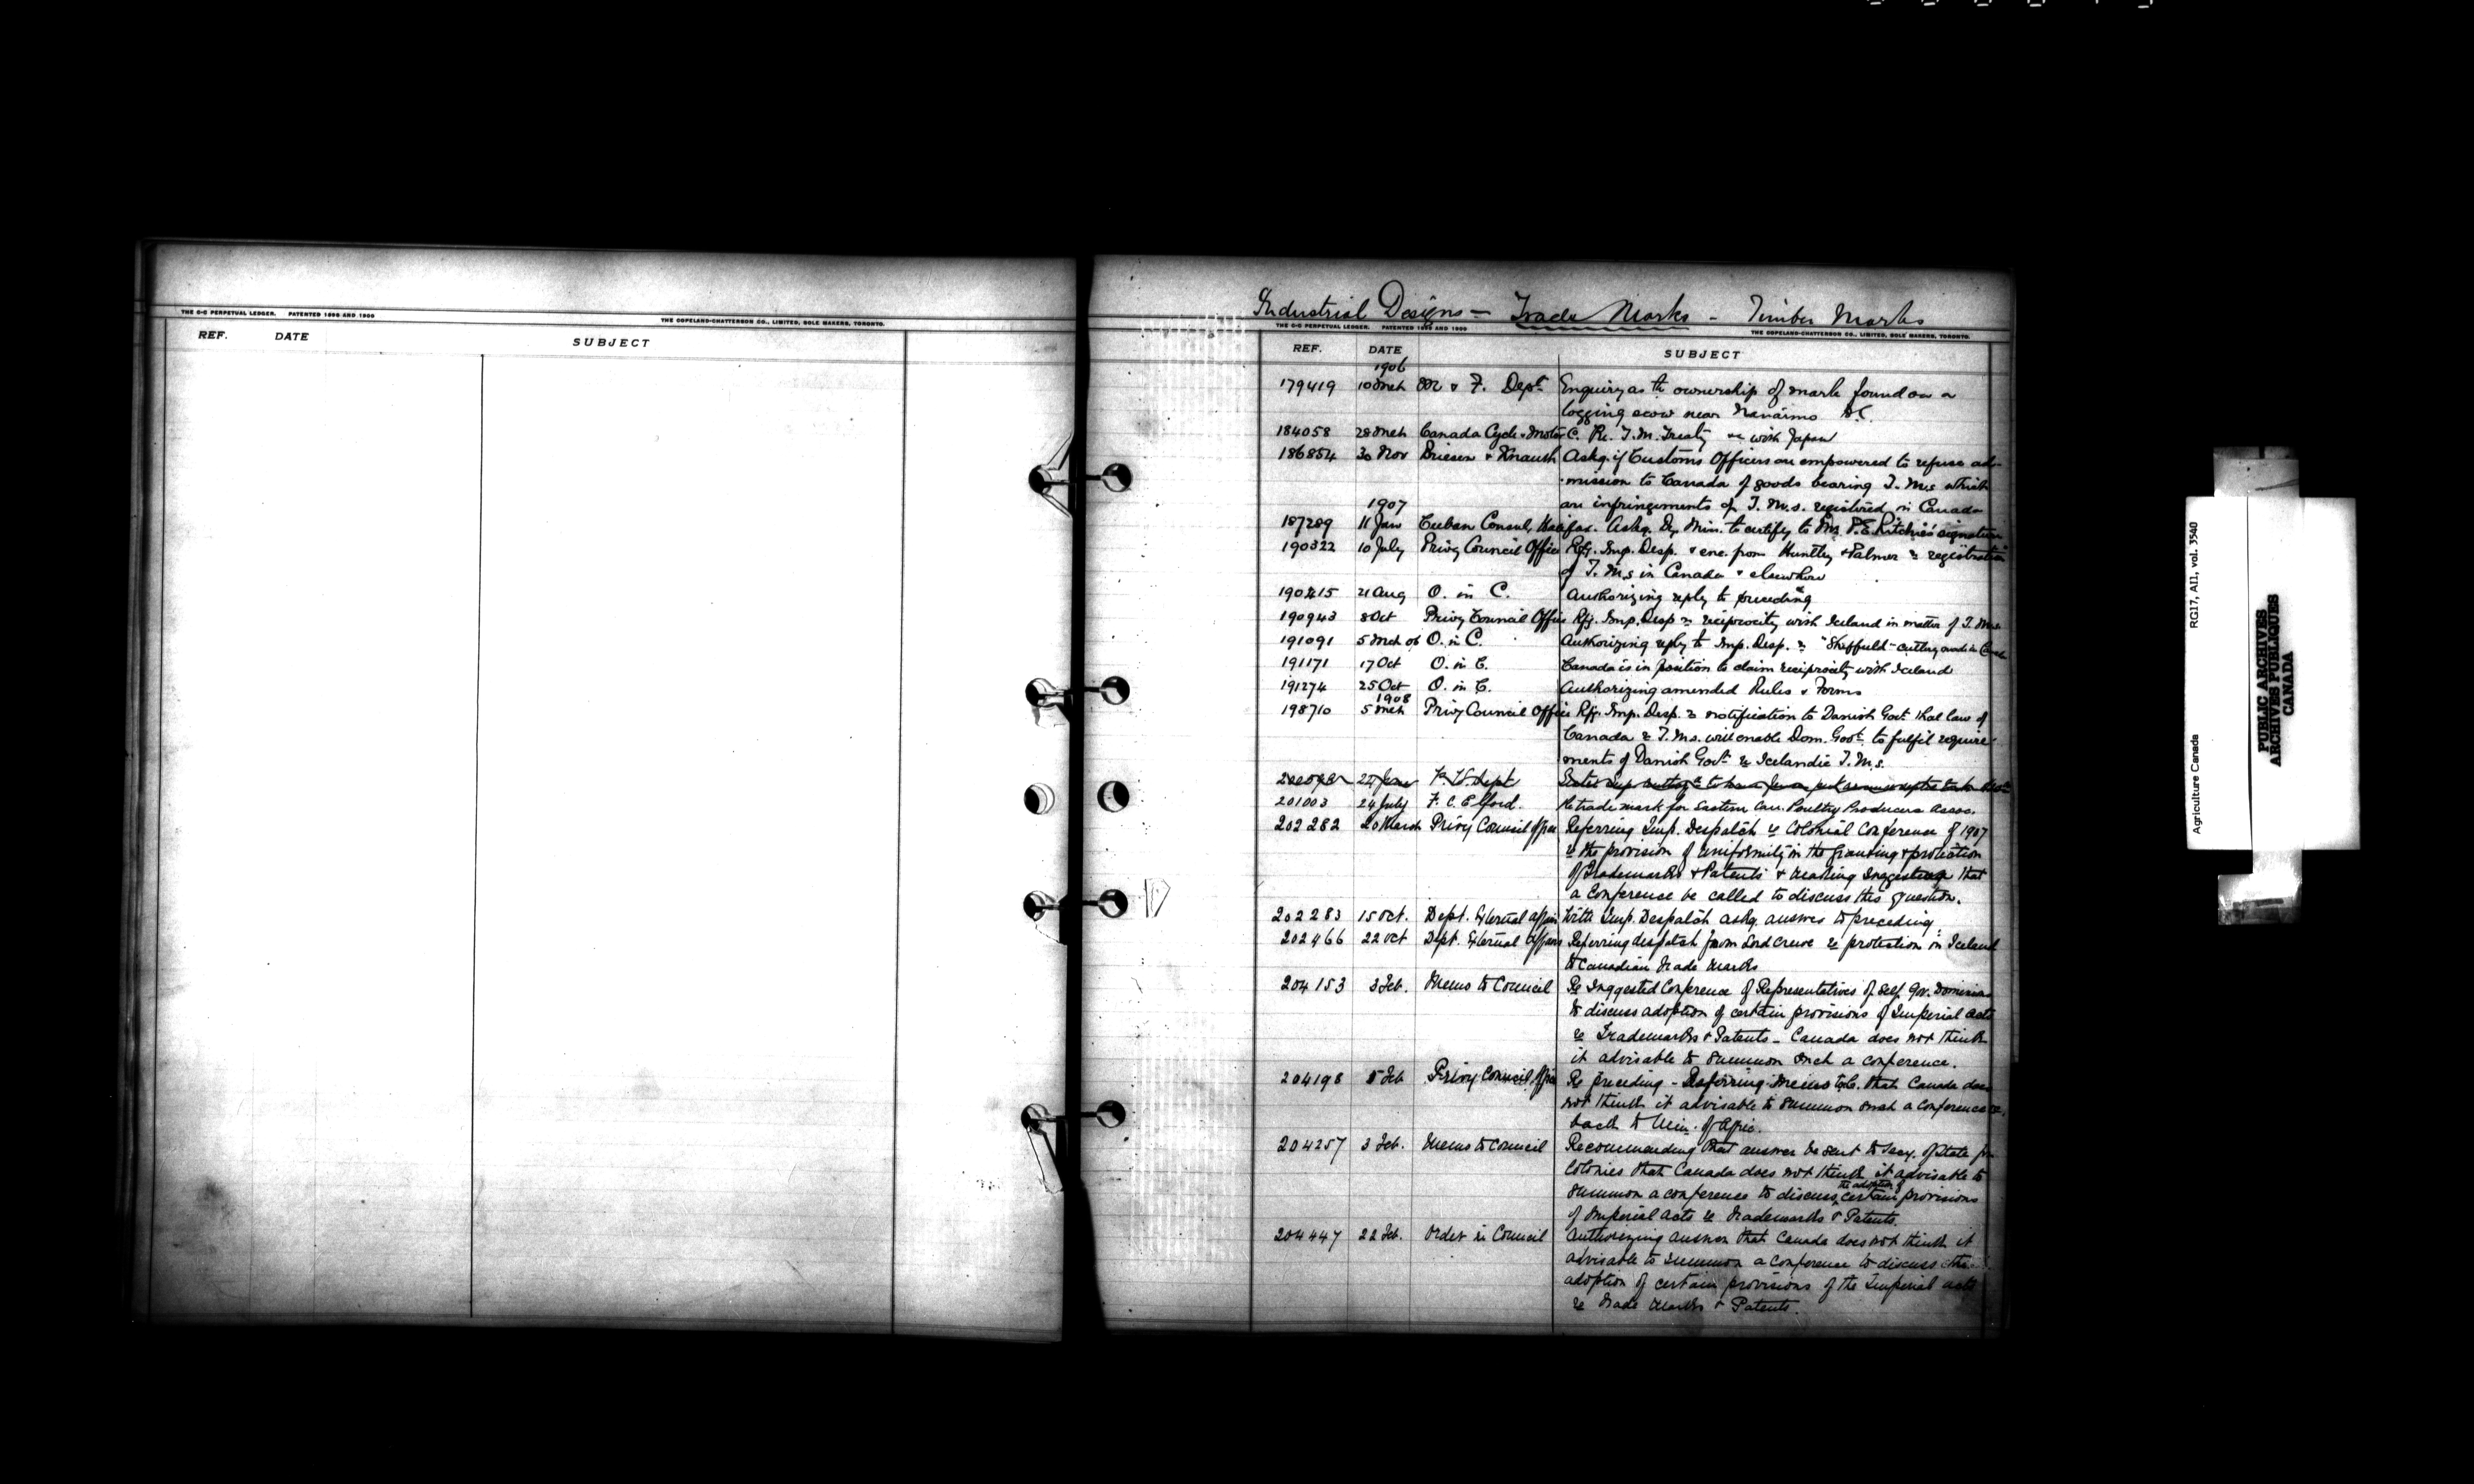 THE C-C PERPETUAL LEDGER. PATENTED 1898 AND 1900
THE COPELAND-CHATTERSON CO., LIMITED, SOLE MAKERS, TORONTO.
REF. DATE SUBJECT
Industrial Designs — Trade Marks — Timber Marks
THE C-C PERPETUAL LEDGER. PATENTED 1898 AND 1900
THE COPELAND-CHATTERSON CO., LIMITED, SOLE MAKERS, TORONTO.
REF. DATE SUBJECT
1906
179419 10 Mch M & F. Dept Enquiry as to ownership of mark found on a
logging scow near Nanaimo B.C.
184058 28 Mch Canada Cycle & Motor C. Re. T.M. Treaty with Japan
186854 30 Nov Driesen & Knauth Askg. if Customs Officers are empowered to refuse ad-
mission to Canada of goods bearing T.M.s which
1907
are infringements of T.M.s. registered in Canada
187289 11 Jan Cuban Consul, Halifax. Askg. Dy. Min. to certify to Mr. P.E. Ritchie's signature
190322 10 July Privy Council Office Rfg. Imp. Desp. & enc. from Huntley & Palmer re registration
of T.M.s in Canada & elsewhere
190415 21 Aug O. in C. Authorizing reply to preceding
190943 8 Oct Privy Council Office Rfg. Imp. Desp re reciprocity with Iceland in matter of T.M.s.
191091 5 Mch 06 O. in C. Authorizing reply to Imp. Desp. re "Sheffield" cutlery
191171 17 Oct O. in C. Canada is in position to claim reciprocity with Iceland
191274 25 Oct O. in C. Authorizing amended Rules & Forms
1908
198710 5 Mch Privy Council Office Rfg. Imp. Desp. re notification to Danish Govt. that law of
Canada re T.Ms. will enable Dom. Govt. to fulfil require-
ments of Danish Govt. re Icelandic T.M.s.
201003 24 July F. C. Elford. Re trade mark for Eastern Can. Poultry Producers Assoc.
202282 20 March Privy Council Office Referring Imp. Despatch re Colonial Conference of 1907
re the provision of uniformity in the granting & protection
of Trademarks & Patents & making suggestion that
a conference be called to discuss this question.
202283 15 Oct. Dept. External Affairs With Imp. Despatch askg. answer to preceding.
202466 22 Oct Dept. External Affairs Referring despatch from Lord Crewe re protection in Iceland
to Canadian Trade Marks
204153 3 Feb. Memo to Council Re Suggested Conference of Representatives of Self Gov. Dominions
to discuss adoption of certain provisions of Imperial acts
re Trademarks & Patents — Canada does not think
it advisable to summon such a conference.
204198 5 Feb Privy Council Office Re preceding — Referring Memo to C. that Canada does
not think it advisable to summon such a conference
back to Min. of Agric.
204257 3 Feb. Memo to Council Recommending that answer be sent to Secy. of State for
Colonies that Canada does not think it advisable to
the adoption of
summon a conference to discuss certain provisions
of Imperial Acts re Trademarks & Patents.
204447 22 Feb. Order in Council Authorizing answer that Canada does not think it
advisable to summon a conference to discuss the
adoption of certain provisions of the Imperial acts
re Trade Marks & Patents.
Agriculture Canada RG17, AII, vol. 3540
PUBLIC ARCHIVES
ARCHIVES PUBLIQUES
CANADA